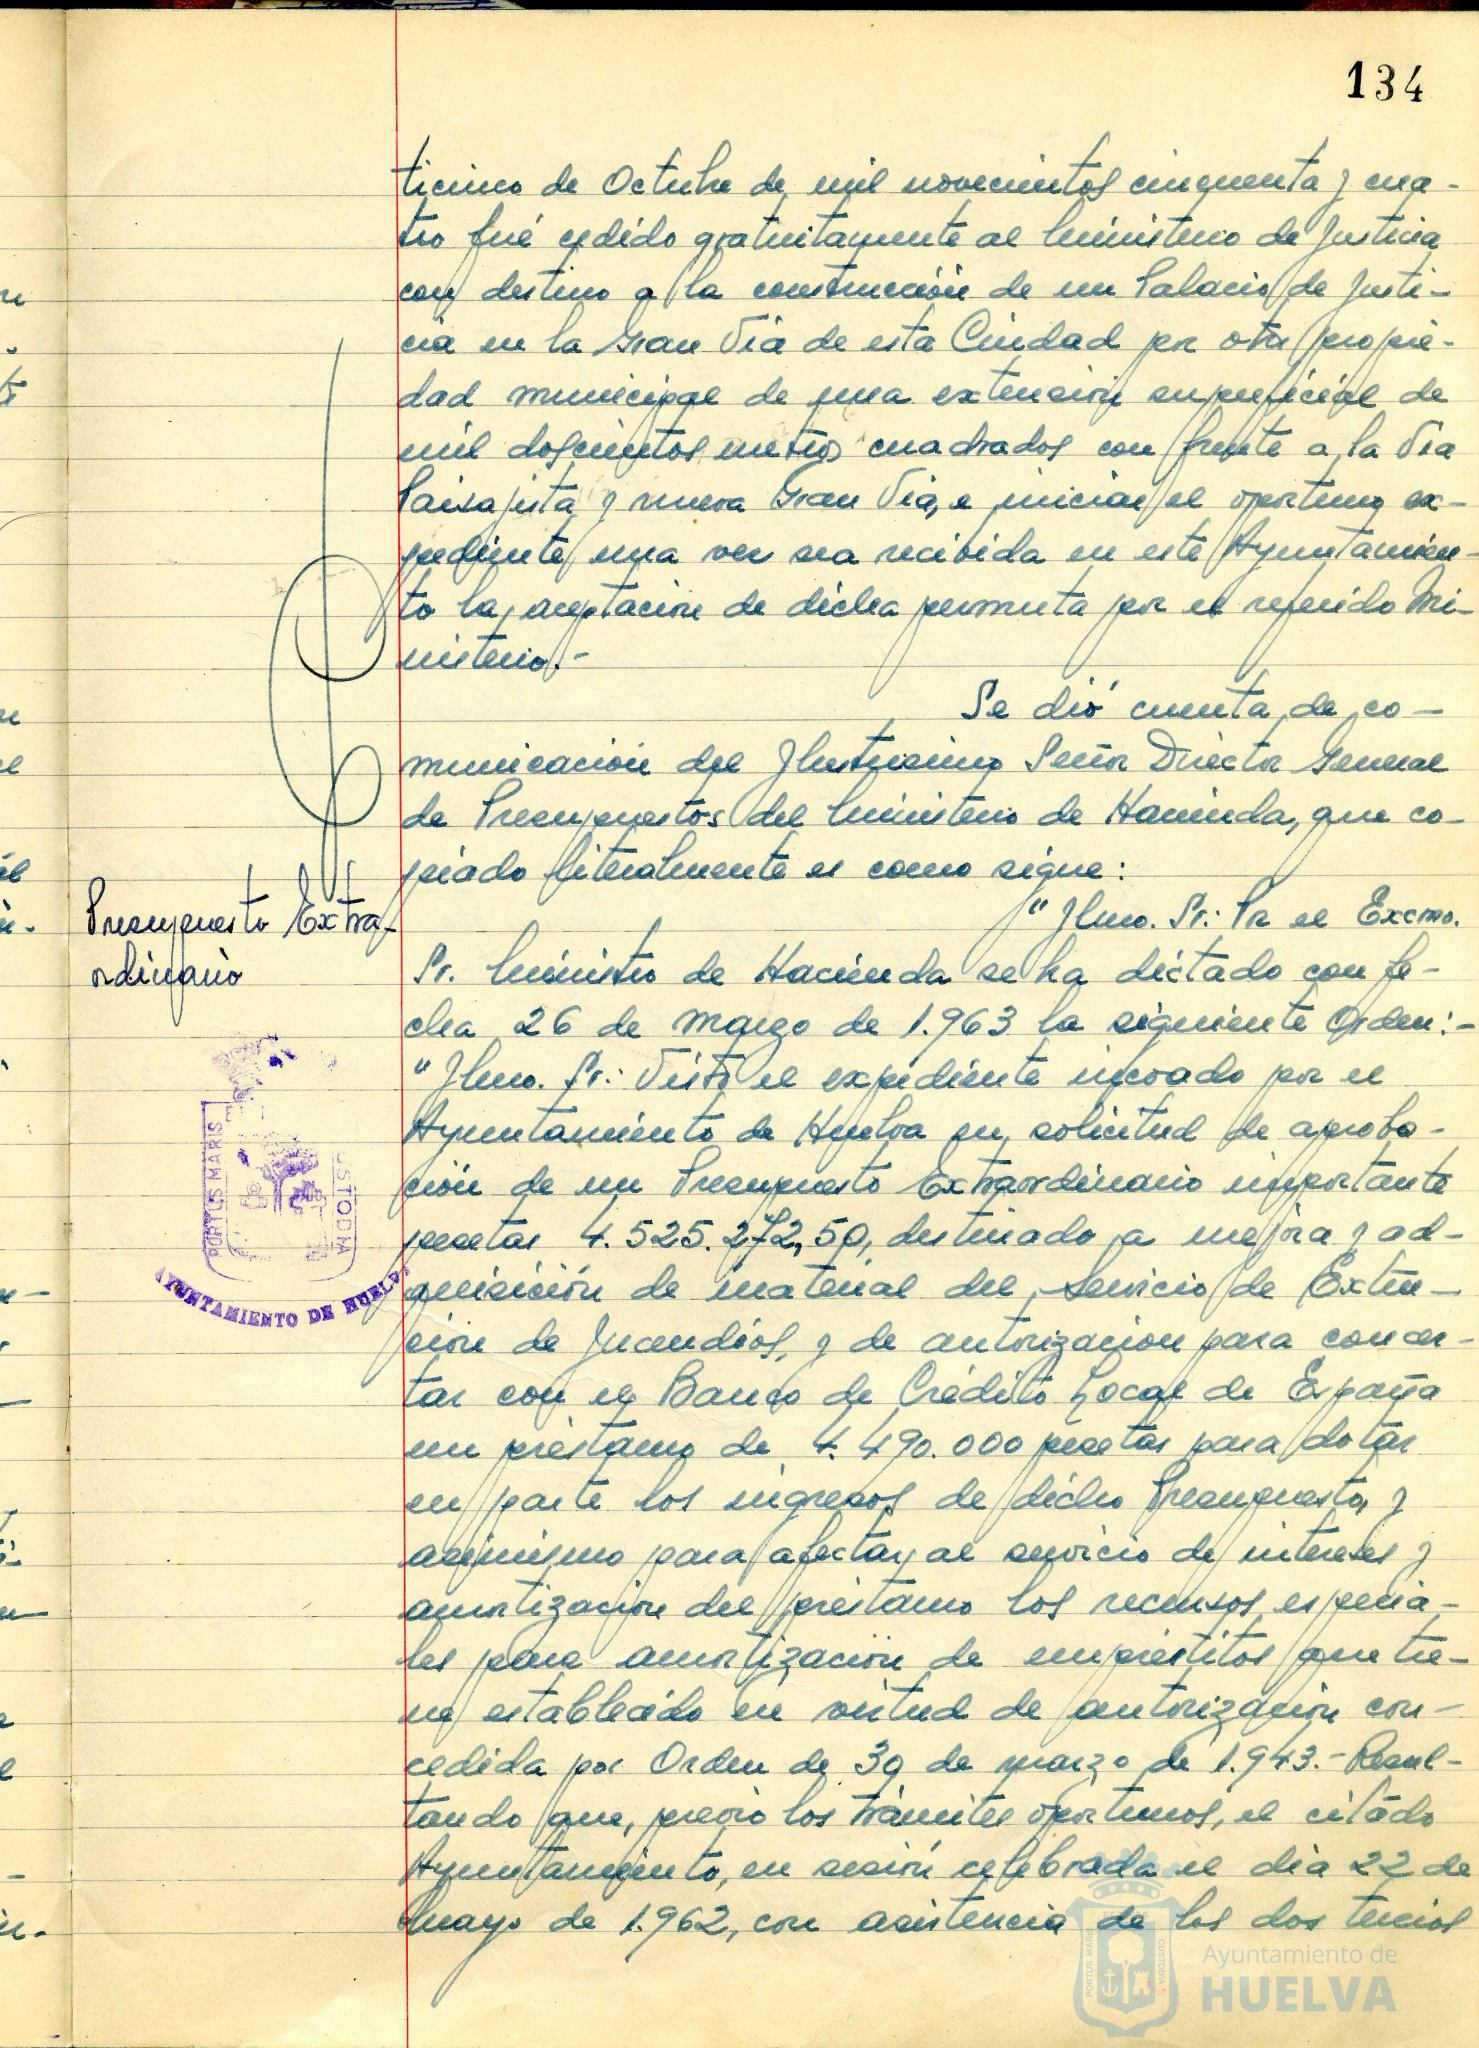 134
ticinco de Octubre de mil novecientos cincuenta y cua-
tro fué cedido gratuitamente al Ministerio de Justicia
con destino a la construcción de un Palacio de Justi-
cia en la Gran Vía de esta Ciudad por otra propie-
dad municipal de una extensión superficial de
mil doscientos metros cuadrados con frente a la Vía
Paisajista y nueva Gran Vía, e iniciar el oportuno ex-
pediente una vez sea recibida en este Ayuntamien-
to la aceptación de dicha permuta por el referido Mi-
nisterio.-
Se dió cuenta de co-
municación del Ilustrísimo Señor Director General
de Presupuestos del Ministerio de Hacienda, que co-
piado literalmente es como sigue:
Presupuesto Extra-
ordinario
"Ilmo. Sr.: Por el Excmo.
Sr. Ministro de Hacienda se ha dictado con fe-
cha 26 de marzo de 1.963 la siguiente Orden:-
"Ilmo. Sr.: Visto el expediente incoado por el
Ayuntamiento de Huelva en solicitud de aproba-
ción de un Presupuesto Extraordinario importante
pesetas 4.525.272,50, destinado a mejora y ad-
quisición de material del Servicio de Extin-
ción de Incendios, y de autorización para concer-
tar con el Banco de Crédito Local de España
un préstamo de 4.490.000 pesetas para dotar
en parte los ingresos de dicho Presupuesto, y
asimismo para afectar al servicio de intereses y
amortización del préstamo los recursos especia-
les para amortización de empréstitos que tie-
ne establecido en virtud de autorización con-
cedida por Orden de 30 de marzo de 1.943.- Resul-
tando que, previo los trámites oportunos, el citado
Ayuntamiento, en sesión celebrada el día 22 de
Mayo de 1.962, con asistencia de los dos tercios
PORTUS MARIS
USTODIA
AYUNTAMIENTO DE HUELVA
PORTUS MARIS
CUSTODIA
Ayuntamiento de
HUELVA